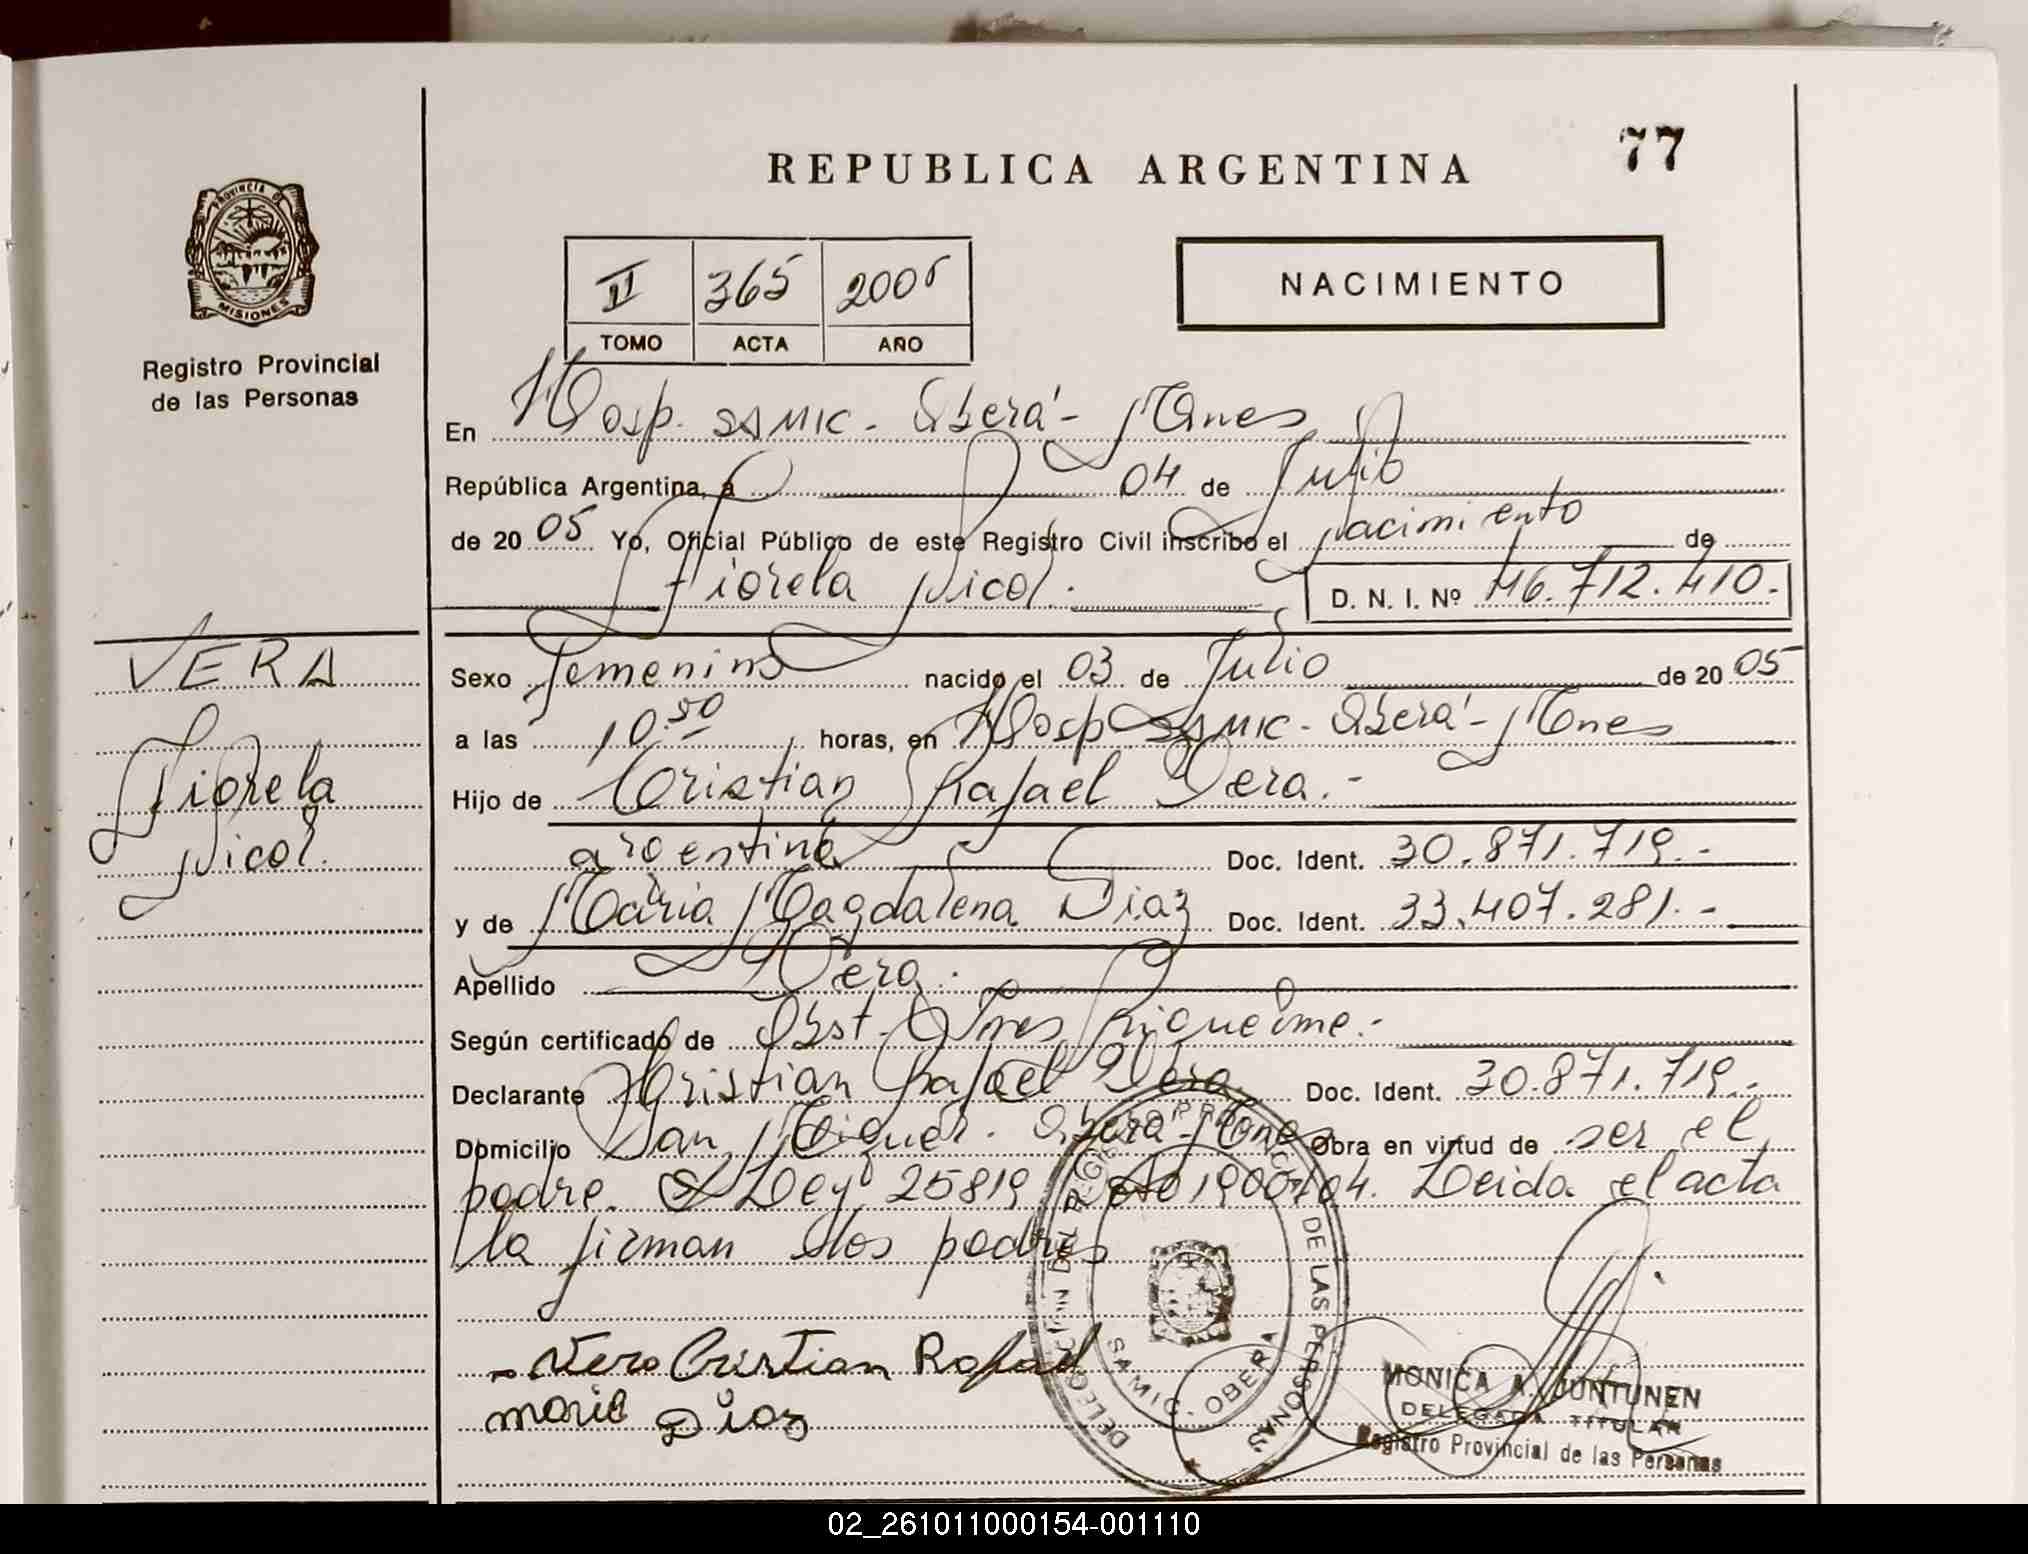 77
REPUBLICA ARGENTINA
PROVINCIA DE
MISIONES
Registro Provincial
de las Personas
II 365 2005
TOMO ACTA AÑO
NACIMIENTO
En Hosp. SAMIC - Oberá - Mnes
República Argentina, a 04 de Julio
de 20 05 Yo, Oficial Público de este Registro Civil inscribo el nacimiento de
Fiorela Nicol. D. N. I. Nº 46.712.410.-
VERA
Fiorela
Nicol.
Sexo Femenino nacido el 03 de Julio de 20 05
a las 10.50 horas, en Hosp SAMIC - Oberá - Mnes
Hijo de Cristian Rafael Vera.-
argentina Doc. Ident. 30.871.719.-
y de Maria Magdalena Diaz Doc. Ident. 33.407.281.-
Apellido Vera.
Según certificado de Obst. Ines Riqueime.-
Declarante Cristian Rafael Vera. Doc. Ident. 30.871.719.-
Domicilio San Miguel. Oberá - Mnes Obra en virtud de ser el
padre. Ley 25819 1900/04. Leida el acta
la firman los padres
Vera Cristian Rafael
maria Diaz
DELEGACION DEL REGISTRO PROVINCIAL DE LAS PERSONAS
SAMIC - OBERA
MONICA A. JUNTUNEN
DELEGADA TITULAR
Registro Provincial de las Personas
02_261011000154-001110